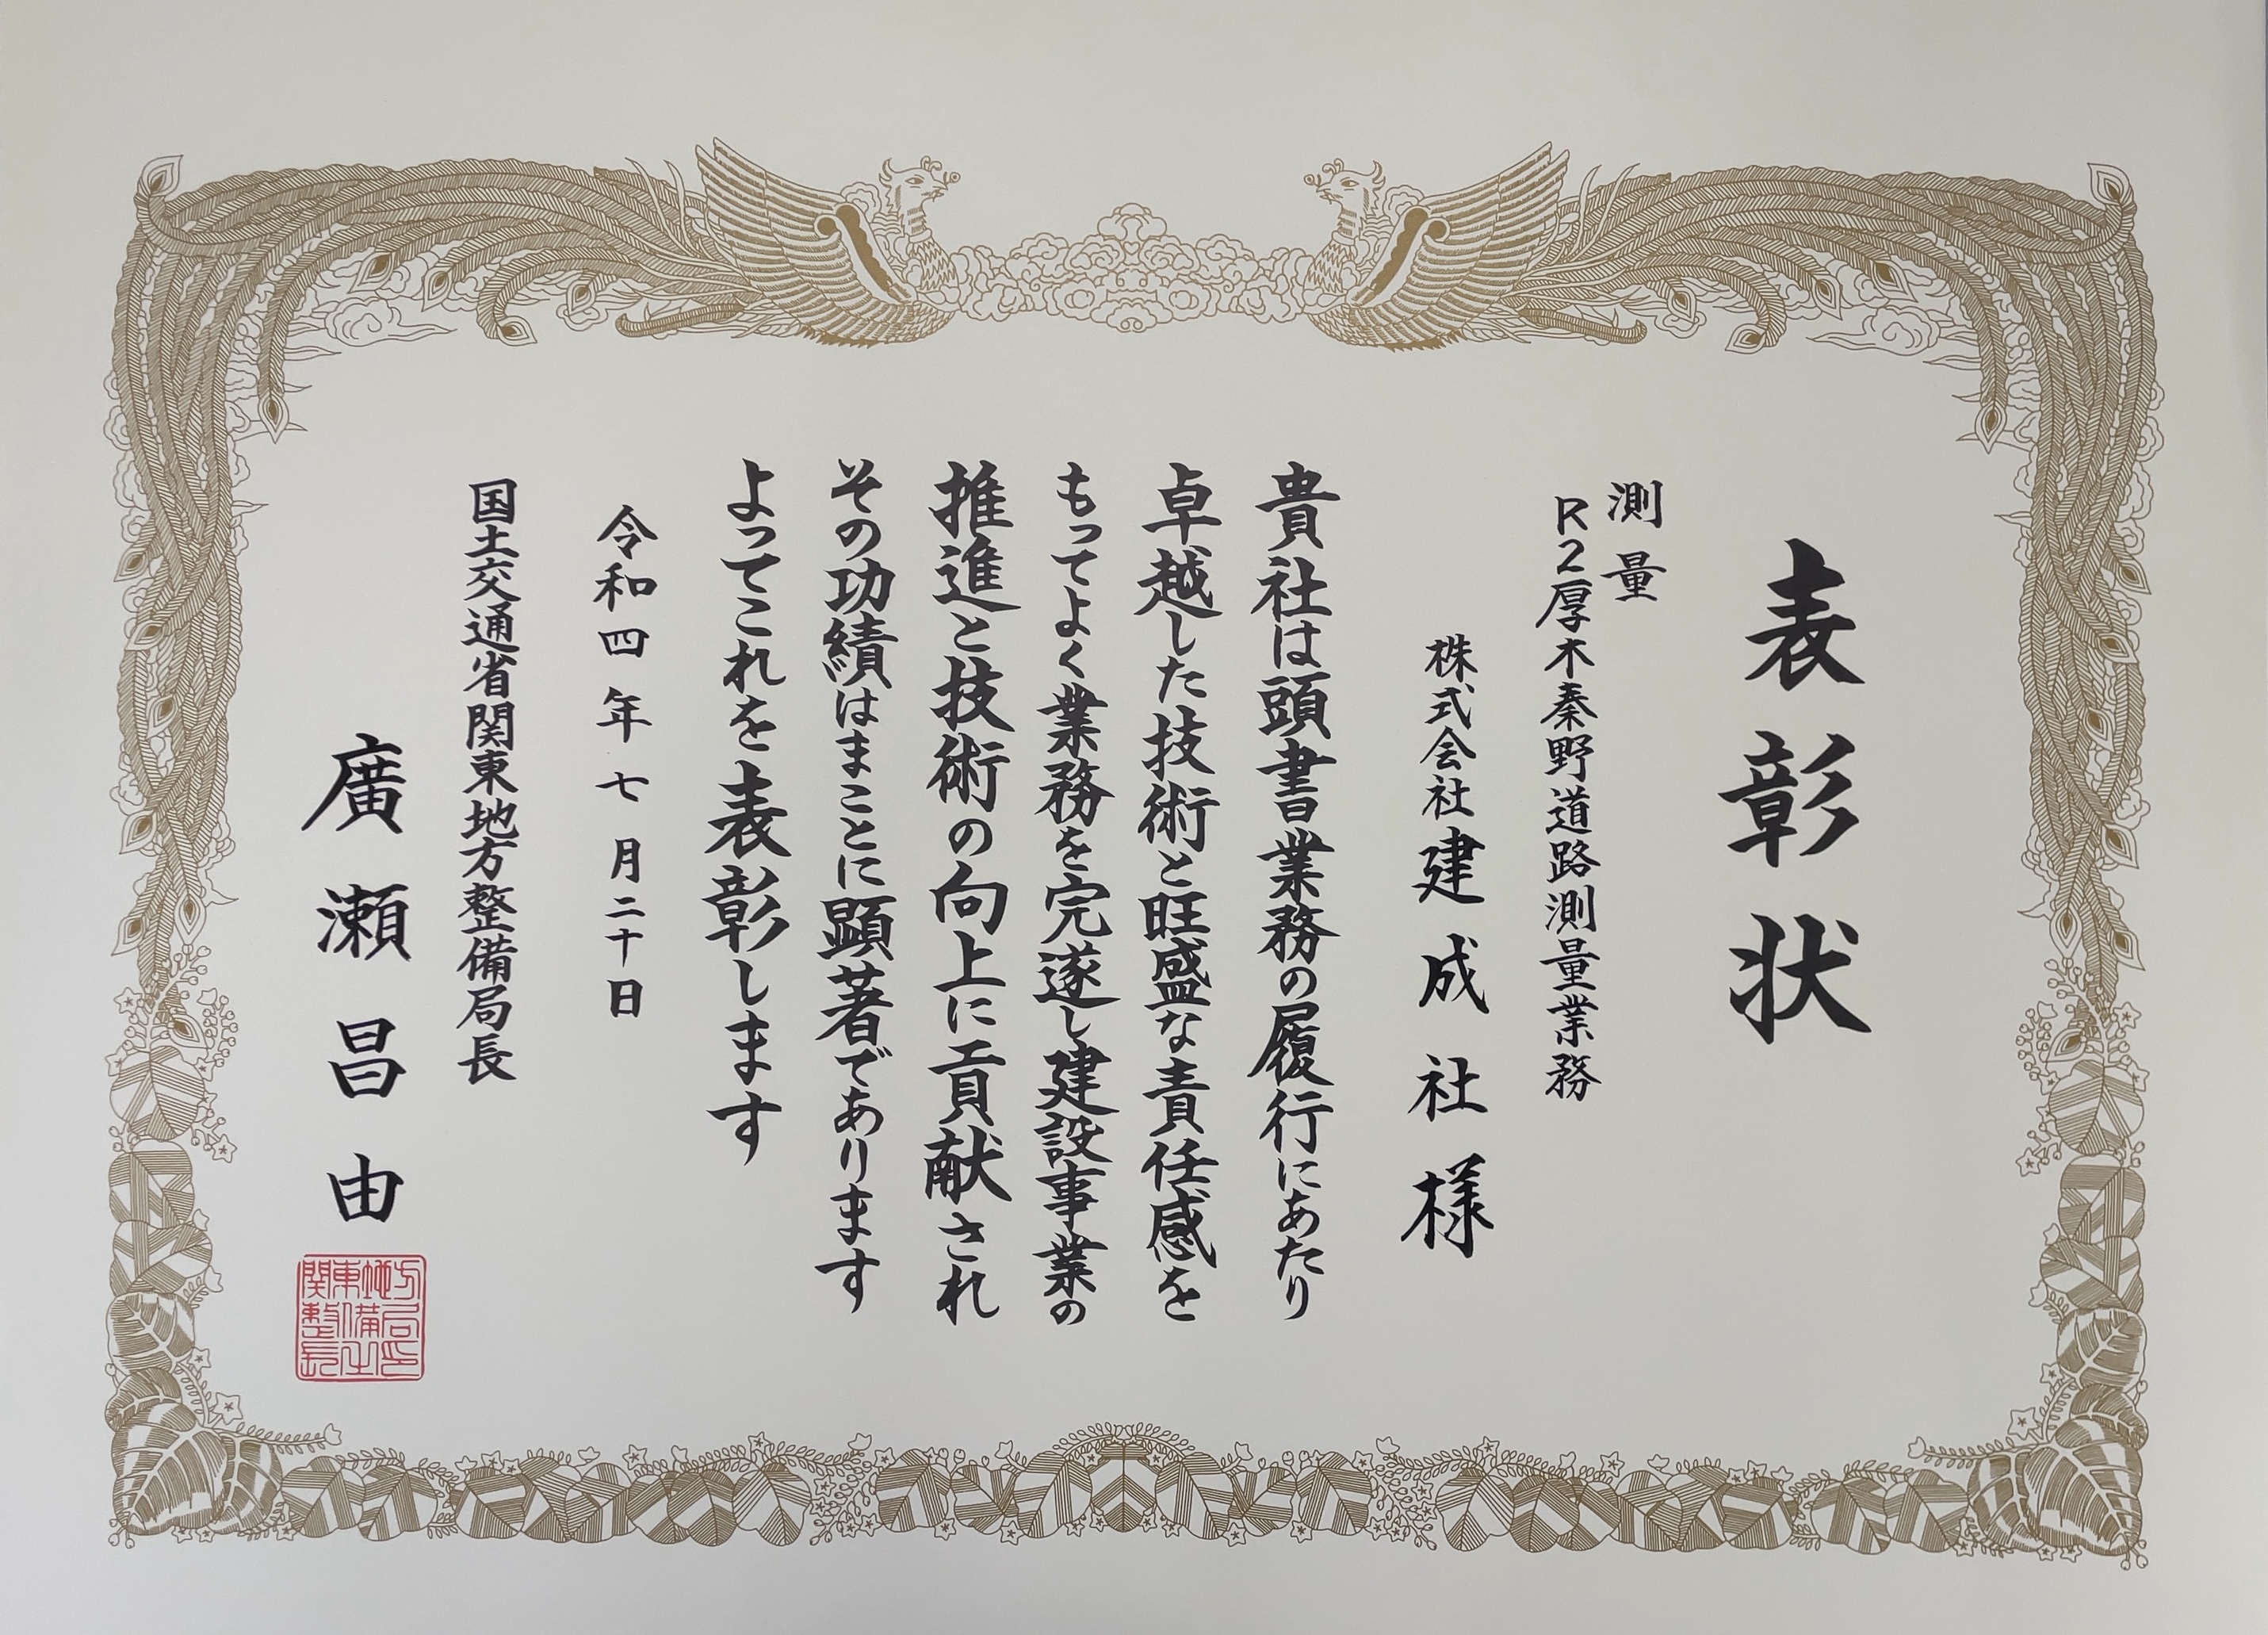 表彰状
測量
R2厚木秦野道路測量業務
株式会社建成社様
貴社は頭書業務の履行にあたり
卓越した技術と旺盛な責任感を
もってよく業務を完遂し建設事業の
推進と技術の向上に貢献され
その功績はまことに顕著であります
よってこれを表彰します
令和四年七月二十日
国土交通省関東地方整備局長
廣瀬昌由
関東地方
整備局
長之印